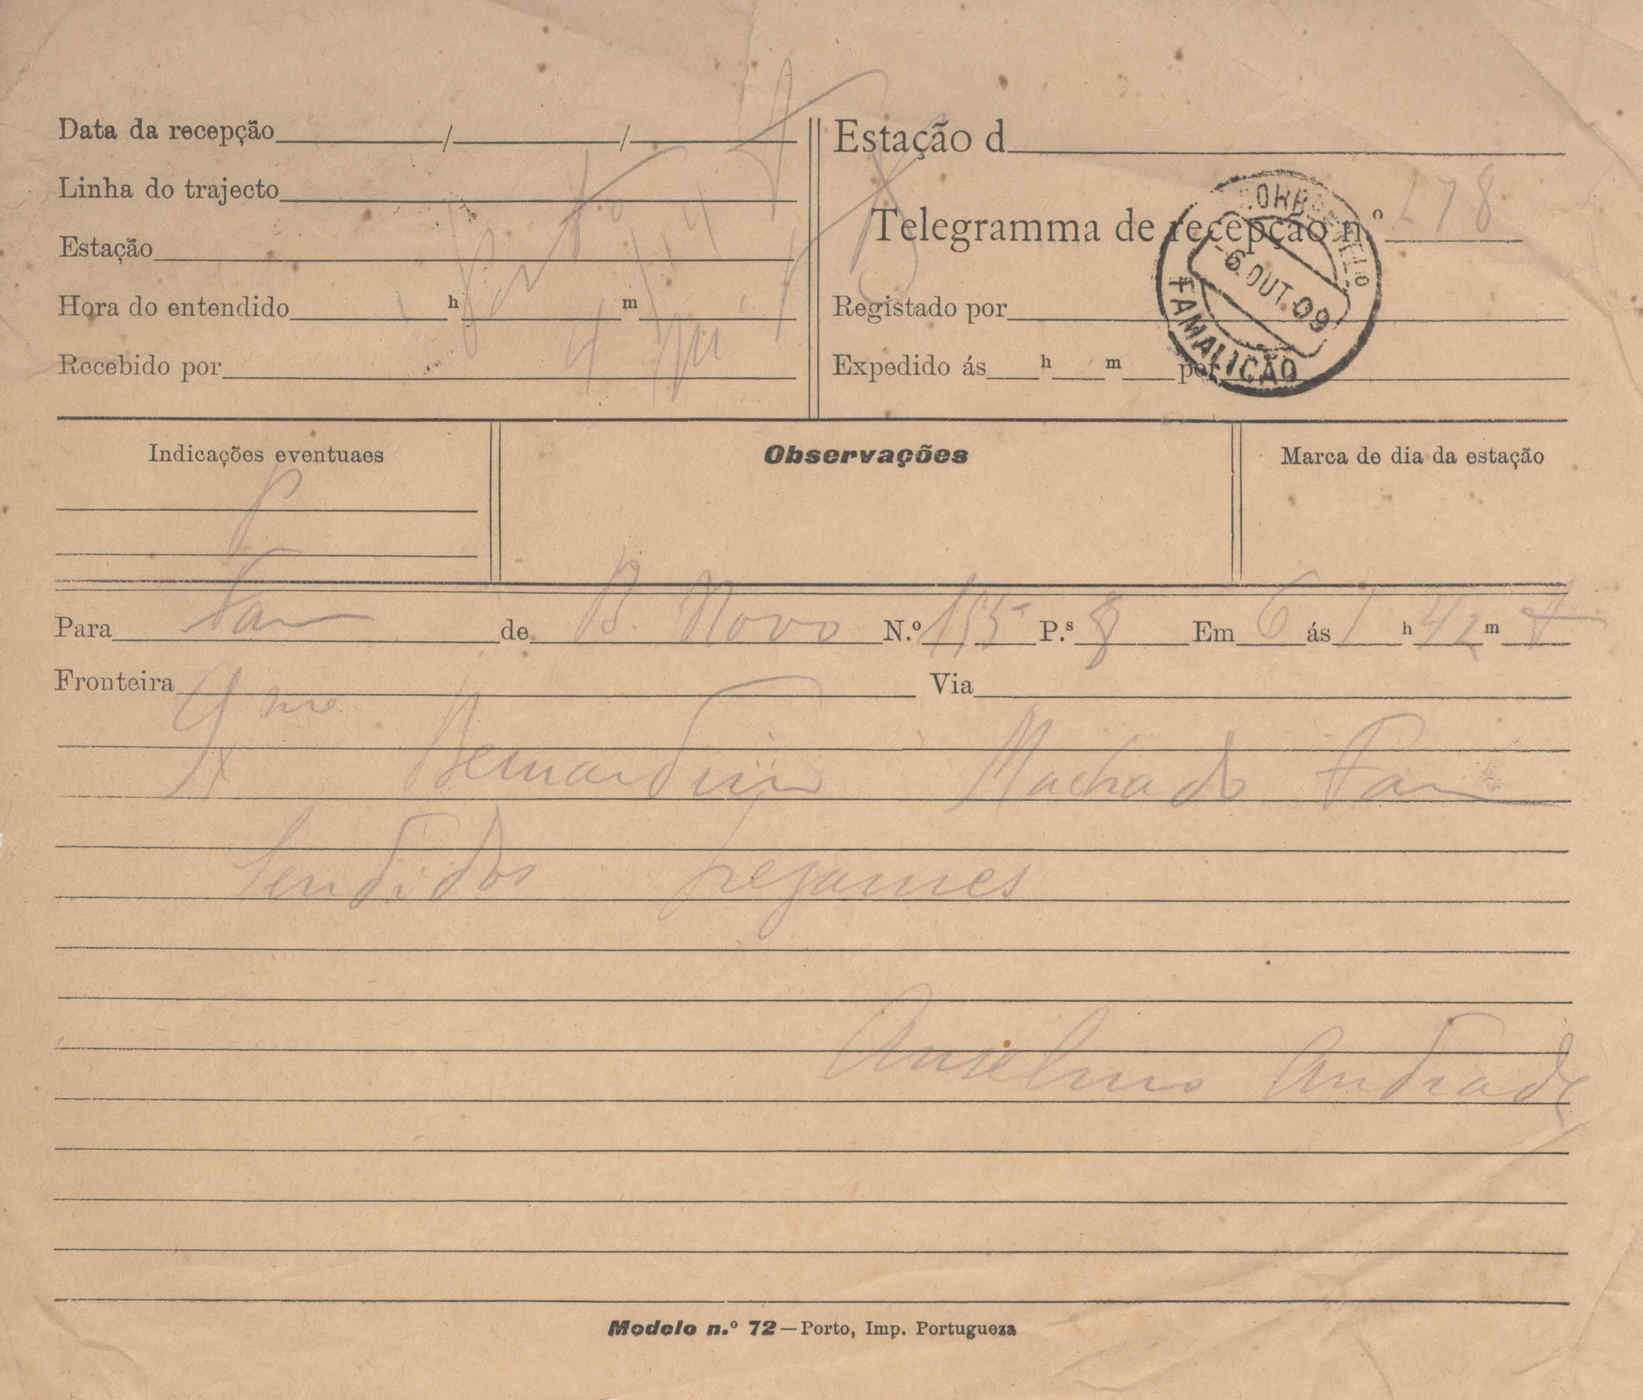 Data da recepção / /
Linha do trajecto
Estação
Hora do entendido h m
Recebido por
Estação d
Telegramma de recepção n.º 278
Registado por
Expedido ás h m por
-6.OUT.09
FAMALICÃO
Indicações eventuaes
Observações
Marca de dia da estação
P
Para Fam de B. Novo N.º 155 P.s 8 Em 6 ás 1 h 42 m t
Fronteira Via
Exmo Bernardino Machado Fam
Sentidos pezames
Anselmo Andrade
Modelo n.º 72—Porto, Imp. Portugueza